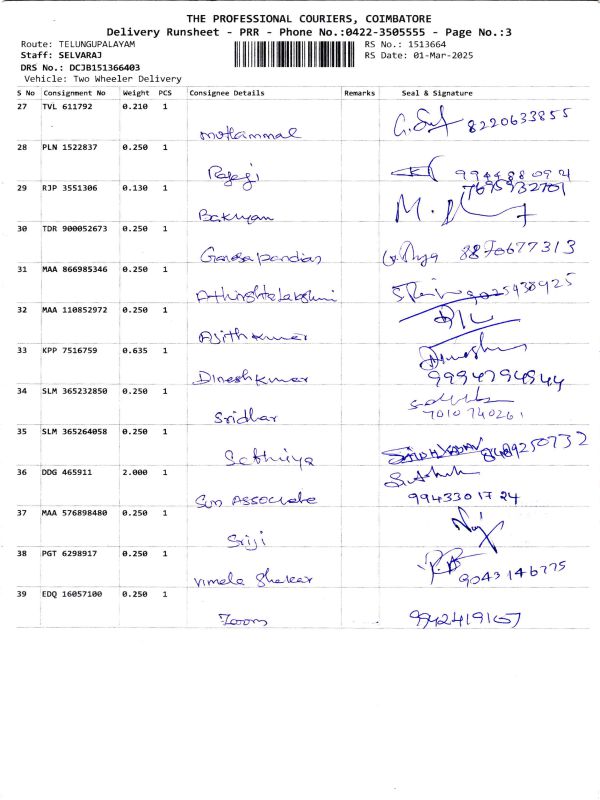 THE PROFESSIONAL COURIERS, COIMBATORE
Delivery Runsheet - PRR - Phone No.:0422-3505555 - Page No.:3
Route: TELUNGUPALAYAM RS No.: 1513664
Staff: SELVARAJ RS Date: 01-Mar-2025
DRS No.: DCJB151366403
Vehicle: Two Wheeler Delivery
S No Consignment No Weight PCS Consignee Details Remarks Seal & Signature
27 TVL 611792 0.210 1
8220633855
28 PLN 1522837 0.250 1
Rajaji
29 RJP 3551306 0.130 1
7695932701
30 TDR 900052673 0.250 1
Ganesapandian 8870677313
31 MAA 866985346 0.250 1
Athirshtalakshmi 9025938925
32 MAA 110852972 0.250 1
Ajithkumar
33 KPP 7516759 0.635 1
Dineshkumar 9994794944
34 SLM 365232850 0.250 1
Sridhar 7010740261
35 SLM 365264058 0.250 1
Sathiya 8489250732
36 DDG 465911 2.000 1
Sun ASSOCIATE 9943301724
37 MAA 576898480 0.250 1
Sriji
38 PGT 6298917 0.250 1
Vimala Shekar 9043146775
39 EDQ 16057100 0.250 1
Zoom 9942419167